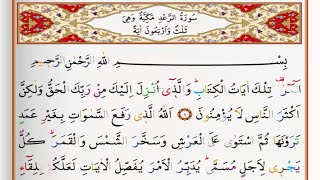 سُورَةُ الرَّعْدِ مَكِّيَّةٌ وَهِيَ
ثَلٰثٌ وَاَرْبَعُونَ اٰيَةً
بِسْمِ اللّٰهِ الرَّحْمٰنِ الرَّحِيمِ
الٓمٓرٰ تِلْكَ اٰيَاتُ الْكِتَابِ وَالَّذٖٓى اُنْزِلَ اِلَيْكَ مِنْ رَبِّكَ الْحَقُّ وَلٰكِنَّ
اَكْثَرَ النَّاسِ لَا يُؤْمِنُونَ ١ اَللّٰهُ الَّذٖى رَفَعَ السَّمٰوَاتِ بِغَيْرِ عَمَدٍ
تَرَوْنَهَا ثُمَّ اسْتَوٰى عَلَى الْعَرْشِ وَسَخَّرَ الشَّمْسَ وَالْقَمَرَ كُلٌّ
يَجْرٖى لِاَجَلٍ مُسَمًّى يُدَبِّرُ الْاَمْرَ يُفَصِّلُ الْاٰيَاتِ لَعَلَّكُمْ بِلِقَٓاءِ